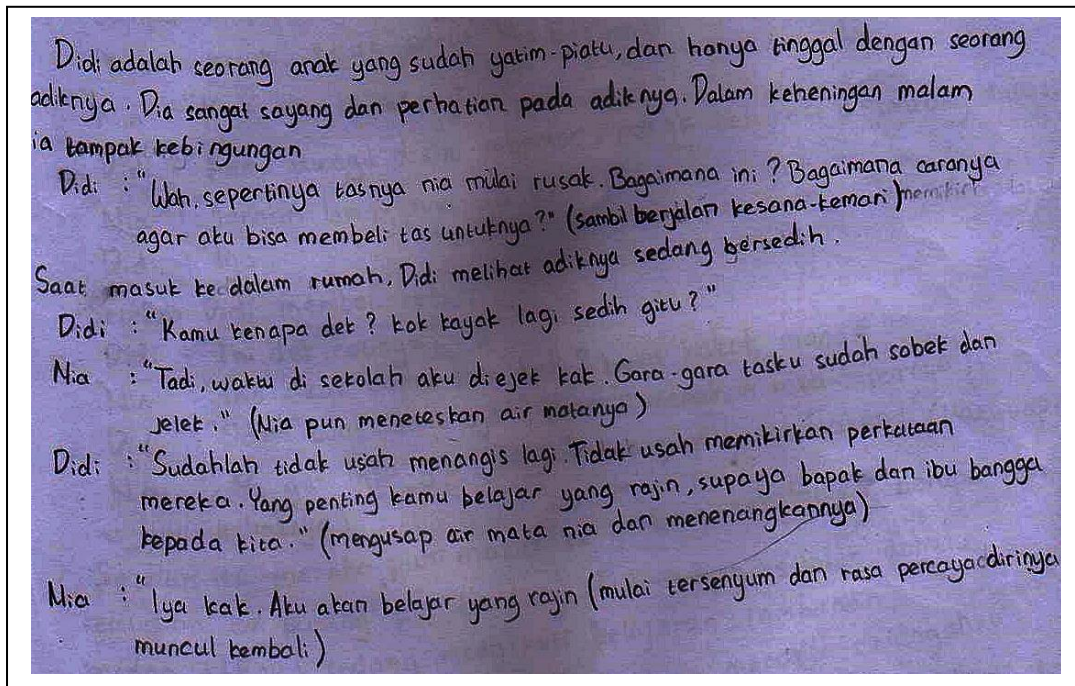 Didi adalah seorang anak yang sudah yatim-piatu, dan hanya tinggal dengan seorang
adiknya. Dia sangat sayang dan perhatian pada adiknya. Dalam keheningan malam
ia tampak kebingungan
Didi : "Wah, sepertinya tasnya nia mulai rusak. Bagaimana ini? Bagaimana caranya
agar aku bisa membeli tas untuknya?" (sambil berjalan kesana-kemari)
Saat masuk ke dalam rumah, Didi melihat adiknya sedang bersedih.
Didi : "Kamu kenapa dek? kok kayak lagi sedih gitu?"
Nia : "Tadi, waktu di sekolah aku diejek kak. Gara-gara tasku sudah sobek dan
jelek." (Nia pun meneteskan air matanya)
Didi : "Sudahlah tidak usah menangis lagi. Tidak usah memikirkan perkataan
mereka. Yang penting kamu belajar yang rajin, supaya bapak dan ibu bangga
kepada kita." (mengusap air mata nia dan menenangkannya)
Nia : "Iya kak. Aku akan belajar yang rajin (mulai tersenyum dan rasa percaya dirinya
muncul kembali)